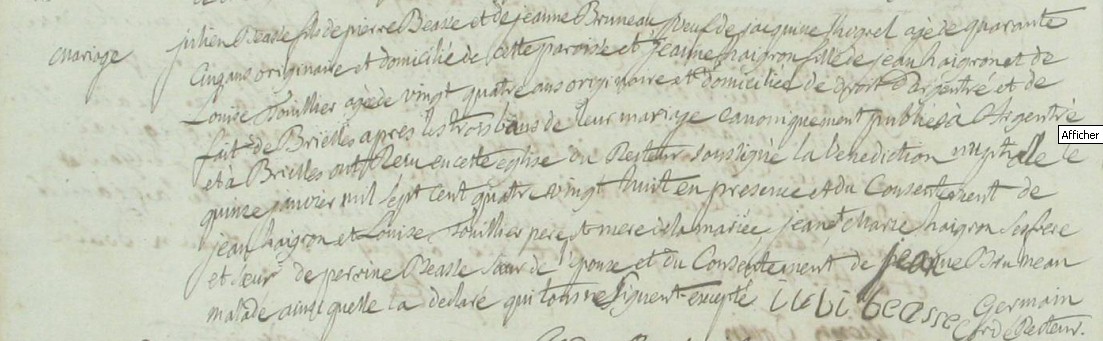 mariage julien Beasse fils de pierre Beasse et de jeanne Bruneau veuf de jacquine thorel agé de quarante
cinq ans originaire et domicilié de cette paroisse et jeanne haigron fille de jean haigron et de
Louise Touillier agée de vingt quatre ans originaire et domiciliée de droit d'argentré et de
fait de Brielles apres les trois bans de leur mariage canoniquement publiés à Argentré
et à Brielles ont Recu en cette eglise du Recteur soussigné la benediction nuptialle le
quinze janvier mil sept cent quatre vingt huit en presence et du Consentement de
jean haigron et Louise Touillier pere et mere de la mariée jean et marie haigron ses frere
et sœur de perrine Beasse sœur de l'epoux et du Consentement de jeanne Bruneau
malade ainsi quelle la declaré qui tous ne signent excepté beasse Germain
Recteur.
Afficher